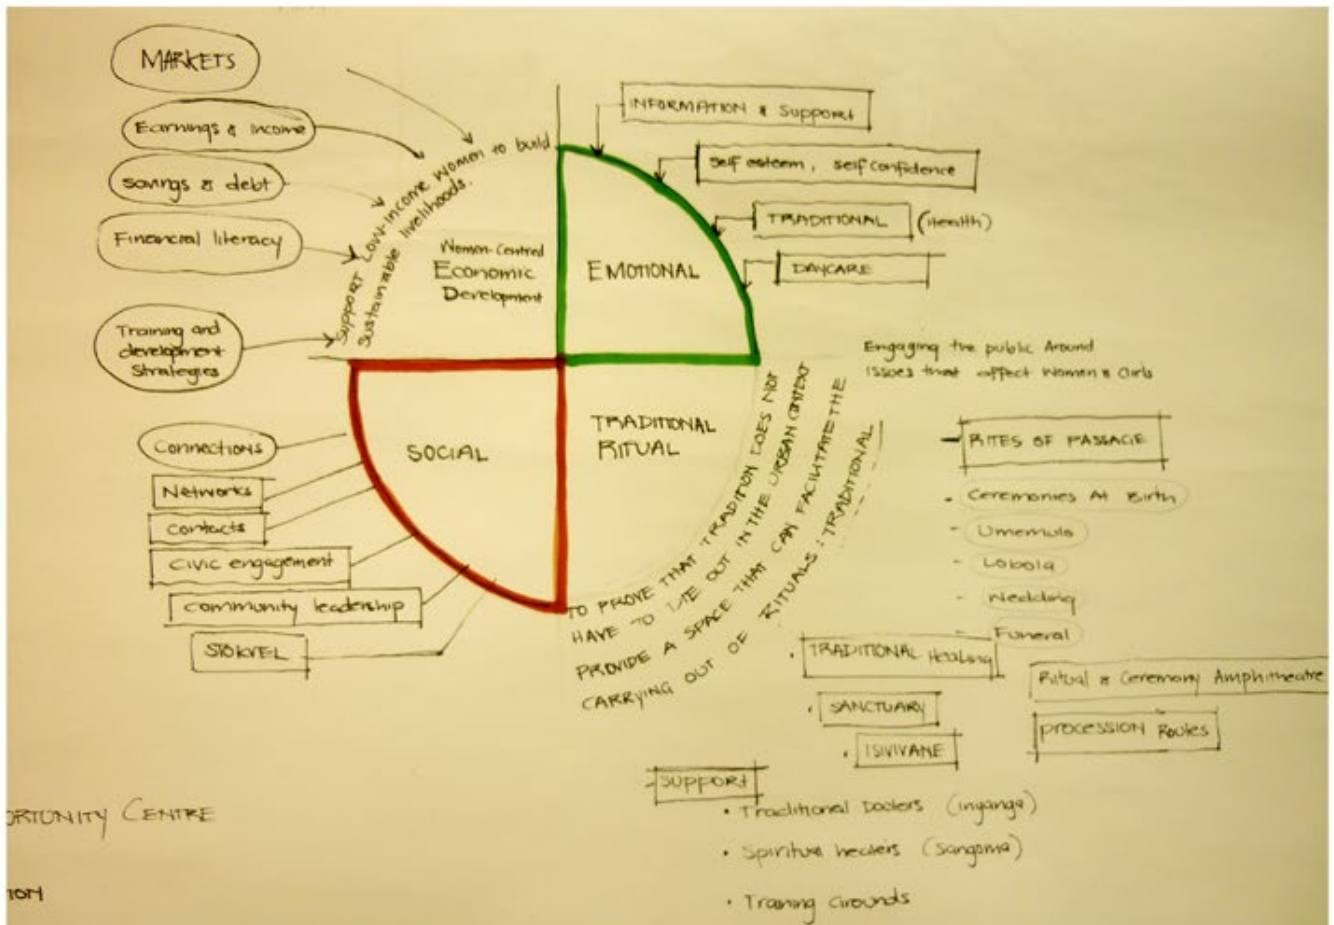 MARKETS
Earnings & Income
Savings & debt
Financial literacy
Training and
development
Strategies
SUPPORT LOW-INCOME WOMEN to build
Sustainable livelihoods.
Women-Centred
Economic
Development
EMOTIONAL
INFORMATION & Support
Self esteem, self confidence
TRADITIONAL (Health)
DAYCARE
SOCIAL
Connections
Networks
Contacts
Civic engagement
Community leadership
STOKVEL
TRADITIONAL
RITUAL
TO PROVE THAT TRADITION DOES NOT
HAVE TO DIE OUT IN THE URBAN CONTEXT
PROVIDE A SPACE THAT CAN FACILITATE THE
CARRYING OUT OF RITUALS : TRADITIONAL
Engaging the public Around
issues that affect Women & Girls
- RITES OF PASSAGE
• Ceremonies At Birth
- Umemulo
- Lobola
- Wedding
- Funeral
• TRADITIONAL Healing
• SANCTUARY
• ISIVIVANE
Ritual & Ceremony Amphitheatre
PROCESSION Routes
- SUPPORT
• Traditional Doctors (inyanga)
• Spiritual healers (Sangoma)
• Training Grounds
ORTUNITY CENTRE
ION